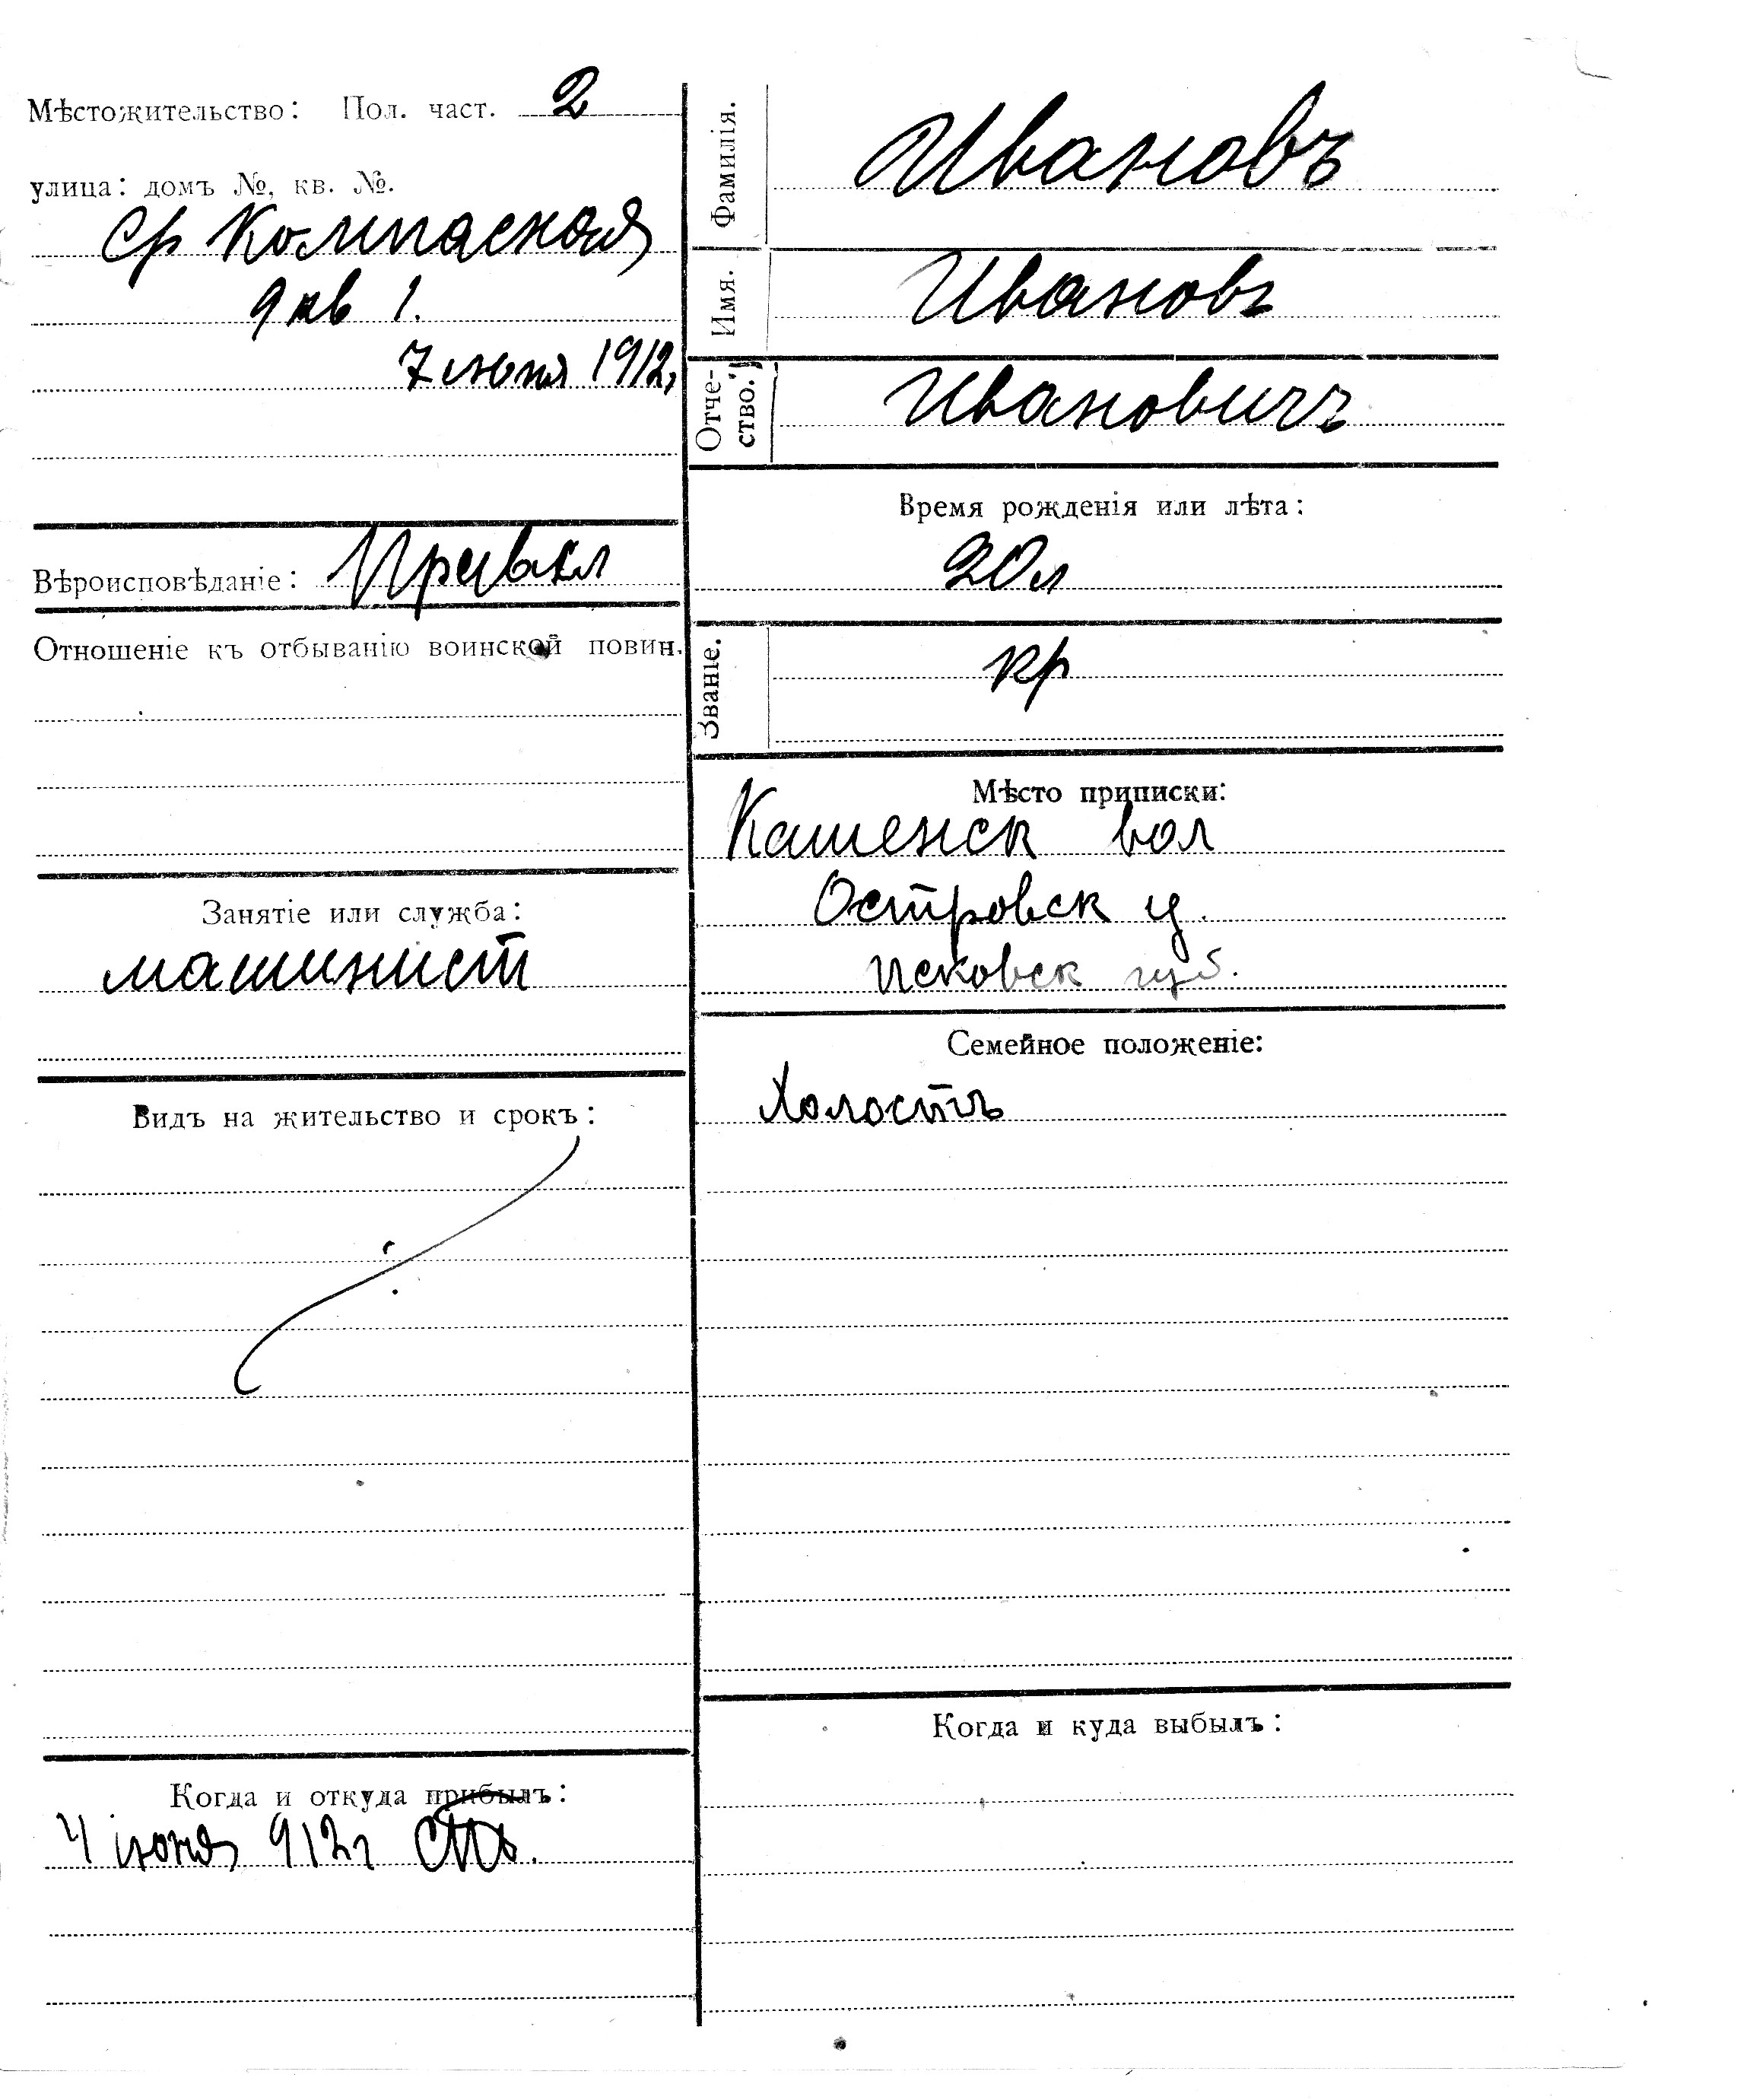 Мѣстожительство: Пол. част. 2
улица: домъ №, кв. №.
Ср Компаская
9 кв 1.
7 июня 1912,
Вѣроисповѣданіе: Правсл
Отношеніе къ отбыванію воинской повин.
Занятіе или служба:
машинист
Видъ на жительство и срокъ:
Когда и откуда прибылъ:
4 июня 912 г
Фамилія. Ивановъ
Имя. Ивановъ
Отче-
ство. Ивановичъ
Время рожденія или лѣта:
20 л
Званіе. кр
Мѣсто приписки:
Кашенск вол
Островск у.
Псковск губ.
Семейное положеніе:
Холостъ
Когда и куда выбылъ: